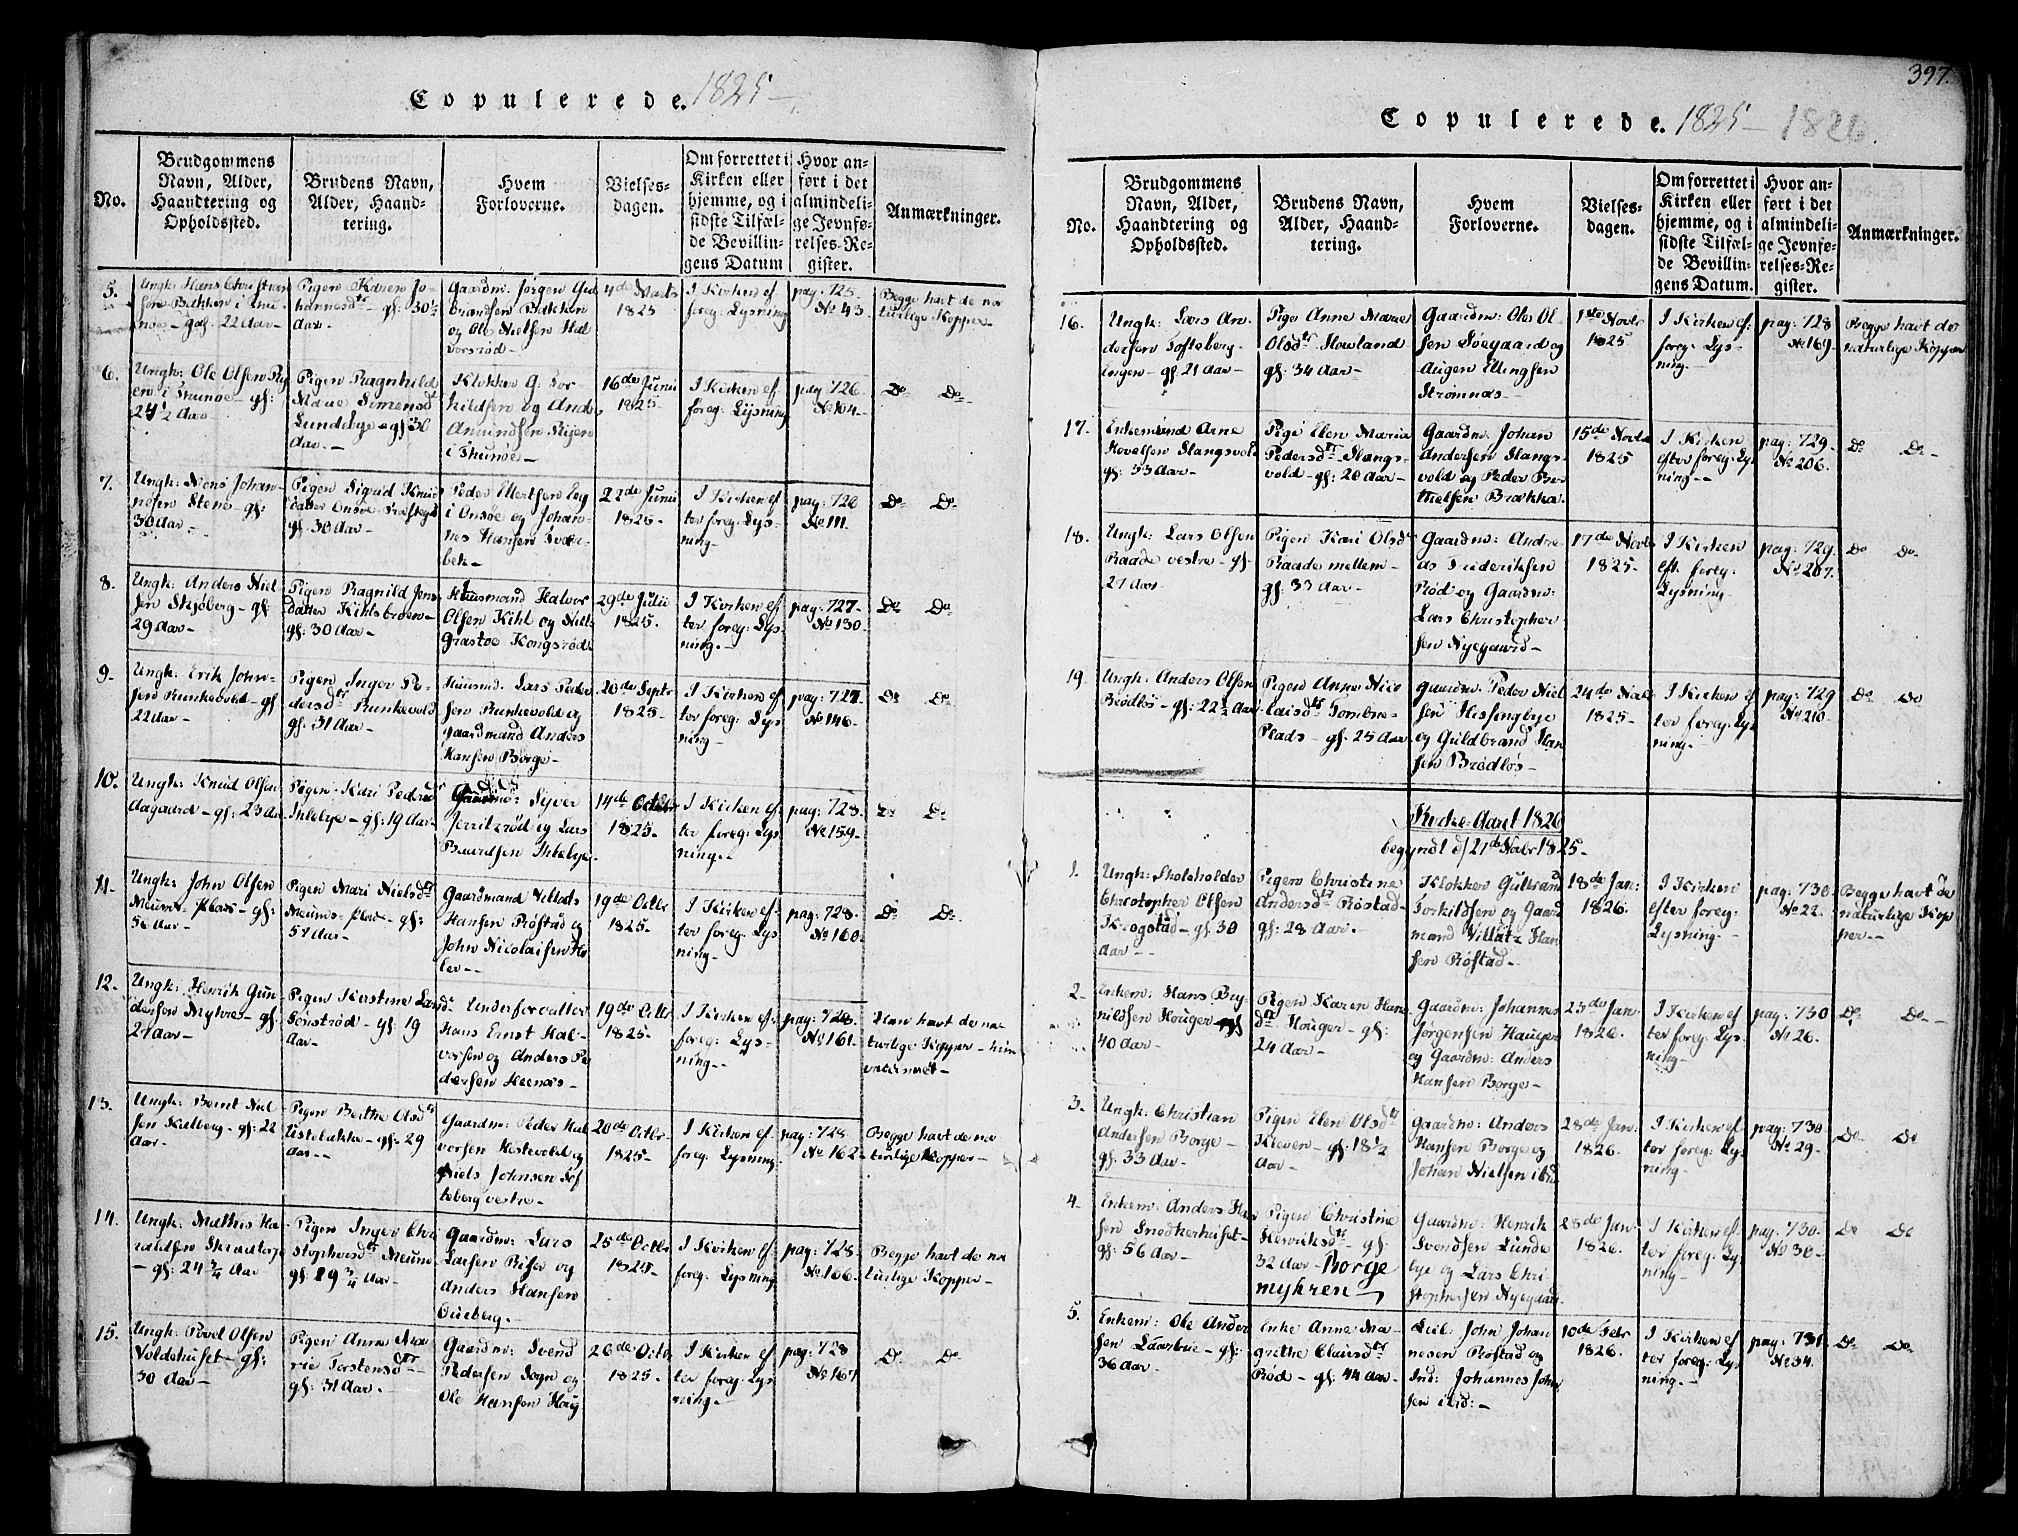 Copulerede. 1825
No.
Brudgommens
Navn, Alder,
Haandtering og
Opholdssted.
Brudens Navn,
Alder, Haand-
tering.
Hvem
Forloverne.
Vielses-
dagen.
Om forrettet i
Kirken eller
hjemme, og i
sidste Tilfæl-
de Bevillin-
gens Datum
Hvor an-
ført i det
almindeli-
ge Jevnfø-
relses-Re-
gister.
Anmærkninger.
5.
Ungk: Hans Christian
gl: 22 Aar
Pigen Karen Jo-
hannesdtr gl: 30½
Aar
Gaardm: Jørgen Gul
brandsen Bakken
og Ole Nielsen Hal
vorsrød
4de Marts
1825
I Kirken ef
foreg. Lysning
pag: 725.
No 43.
Begge havt de na
turlige Kopper
6.
Ungk: Ole Olsen
24½ Aar
Pigen Ragnhild
Marie Simensd
Lundebye gl 30
Aar.
Klokker G: Tor
kildsen og Anders
Amundsen
16de Junii
1825.
I Kirken ef
foreg: Lysning
pag: 726.
No 104.
Do Do
7.
Ungk: Mons Johan
nesen Stene gl:
30 Aar
Pigen Sigrid Knud
datter Onsøe Præstegd
gl: 30 Aar
Peder Ellertsen
i Onsøe og Johan
nes Hansen
bek
22de Junii
1825
I Kirken ef
ter foreg: Lys
ning
pag: 726
No 111.
Do Do
8.
Ungk: Anders Niel
sen Skjøberg gl:
29 Aar
Pigen Ragnild Jens
datter Kihlsbroen
gl: 30 Aar
Huusmand Halvor
Olsen Kihl og Niels
Grastoe Kongsrød
29de Julii
1825.
I Kirken ef
ter foreg: Lys
ning.
pag: 727.
No 130.
Do Do
9.
Ungk: Erik John-
sen Runkevold gl
22 Aar
Pigen Inger Pe-
dersdtr Runkevold
gl: 31 Aar
Huusmd. Lars Peder
sen Runkevold og
Gaardmand Anders
Hansen Borge
20de Septr
1825
I Kirken ef
ter foreg: Lys
ning
pag: 727.
No 146.
Do Do
10.
Ungk: Knud Olsen
Aagaard gl: 23 Aar
Pigen Kari Pedersd
Ihlebye gl: 19 Aar
Gaardm: Syver
og Lars
Baardsen Ihlebye
14de Octobr
1825.
I Kirken ef
ter foreg: Lys
ning.
pag: 728.
No 159.
Do Do
11.
Ungk: John Olsen
56 Aar
Pigen Mari Nielsdtr
gl:
51 Aar
Gaardmand Villads
Hansen Røstad og
John Nicolaisen
19de Octbr
1825.
I Kirken ef
ter foreg: Lys
ning
pag: 728.
No 160.
Do Do
12.
Ungk: Henrik Gun
dersen Myhre gl:
Pigen Kirstine
gl 19
Aar
Underforvalter
Hans Ernst Hal
vorsen og Anders Pe
dersen
19de Octbr
1825.
I Kirken ef:
foreg: Lys
ning
pag: 728.
No 161.
Han havt de na
turlige Kopper hun
vaccineret
13.
Ungk: Bernt Niel
sen Kulberg gl: 22
Aar
Pigen Berthe Olsdtr
gl: 29
Aar
Gaardm: Peder Hal
vorsen Hestevold og
Niels Johnsen Tof
teberg vestre
20de Octbr
1825
I Kirken ef.
foreg. Lysning
pag: 728.
No 162.
Begge havt de na
turlige Kopper
14.
Ungk: Mathis Ha
raldsen
gl: 24¾ Aar
Pigen Inger Chri
stophersdtr
gl: 29¾ Aar
Gaardm: Lars
Larsen Riser og
Anders Hansen
Oueberg.
25de Octbr
1825
I Kirken ef:
foreg: Lysning
pag: 728.
No 166.
Begge havt de na
turlige Kopper
15.
Ungk: Povel Olsen
Voldehuset gl:
30 Aar
Pigen Anne Ma
rie Torstensdtr
gl: 31 Aar.
Gaardm: Svend
Pedersen Sogn og
Ole Hansen Houg
26de Octbr
1825.
I Kirken ef
ter foreg: Lys
ning
pag: 728
No 167
Do Do
397.
Copulerede. 1825 1826.
No.
Brudgommens
Navn, Alder,
Haandtering og
Opholdssted.
Brudens Navn,
Alder, Haand-
tering.
Hvem
Forloverne.
Vielses-
dagen.
Om forrettet i
Kirken eller
hjemme, og i
sidste Tilfæl-
de Bevillin-
gens Datum.
Hvor an-
ført i det
almindeli-
ge Jevnfø-
relses-Re-
gister.
Anmærkninger.
16.
Ungk: Lars An
dersen Tofteberg
engen gl 21 Aar
Pige Anne Marie
Olsdtr Howland
gl: 34 Aar
Gaardm: Ole Ol
sen Svegaard og
Augen Ellingsen
Strømnæs
1ste Novbr
1825
I Kirken ef.
foreg: Lys
ning.
pag: 728
No 169.
Begge havt de
naturlige Kopper
17.
Enkemand Arne
Hovelsen Slangsvold
gl: 33 Aar
Pige Elen Maria
Pedersdtr Slangs
vold gl: 20 Aar
Gaardm: Johan
Andersen Slangs
vold og Peder Ber
thelsen Brække
15de Novbr
1825
I Kirken
efter foreg: Lys
ning
pag: 729.
No 206.
Do Do
18.
Ungk: Lars Olsen
Raade vestre gl
27 Aar
Pigen Kari Olsd
Raade mellem
gl: 33 Aar
Gaardm: Andre
as Frideriksen
Rød og Gaardm:
Lars Christopher
sen Nyegaard
17de Novbr
1825.
I Kirken
eft. foreg:
Lysning
pag: 729.
No 207.
Do Do
19
Ungk: Anders Olsen
Brødløs gl: 22½ Aar
Pigen Anne Nico
laisdtr Tombre
Plads gl. 25 Aar
Gaardm: Peder Niel
sen Hissingbye
og Guldbrand Han
sen Brødløs
24de
1825
I Kirken ef
ter foreg. Lys
ning.
pag: 729
No 210.
Do Do
Kirke-Aaret 1826
begyndt d 27de Novbr 1825
1.
Ungk: Skoleholder
Christopher Olsen
Krogstad gl 30
Aar
Pigen Christine
Andersdtr Røstad
gl: 28 Aar.
Klokker Gulbrand
Torkildsen og Gaard
mand Villatz Han
sen Røstad
18de Jan:
1826.
I Kirken
efter foreg:
Lysning
pag: 730
No 22.
Begge havt de
naturlige Kop
per
2.
Enkem: Hans Bry
nildsen Houger gl
40 Aar
Pigen Karen Hans
dtr Houger gl:
24 Aar
Gaardm: Johannes
Jørgensen Hauger
og Gaardm: Anders
Hansen Borge
23de Jan
1826.
I Kirken ef
ter foreg: Lys
ning
pag: 730
No 26.
Do Do
3.
Ungk: Christian
Andersen Borge
gl: 33 Aar
Pigen Elen Olsdtr
Kleven gl: 18½
Aar
Gaardm: Anders
Hansen Borge og
Johan Nielsen ibid
28de Jan.
1826.
I Kirken ef
ter foreg: Lys
ning
pag: 730
No 29.
Do Do
4.
Enkem: Anders Han
sen Snedkerhuset
gl: 56 Aar
Pigen Christine
Henriksdtr gl:
32 Aar Borge
myhren
Gaardm: Henrik
Svendsen Lunde
bye og Lars Chri
stophersen Nyegaard
28de Jan
1826.
I Kirken ef
ter foreg. Ly
ning
pag: 730.
No 30
Do Do
5.
Enkem: Ole Ander
sen Laarbue gl:
36 Aar
Enke Anne Ma
grethe Clausdtr
Rød gl: 44 Aar
John Johan
nesen Røstad og
Johannes John
sen ibid:
10de Febr
1826.
I Kirken ef
ter foreg: Lys
ning.
pag: 731.
No 34.
Do Do